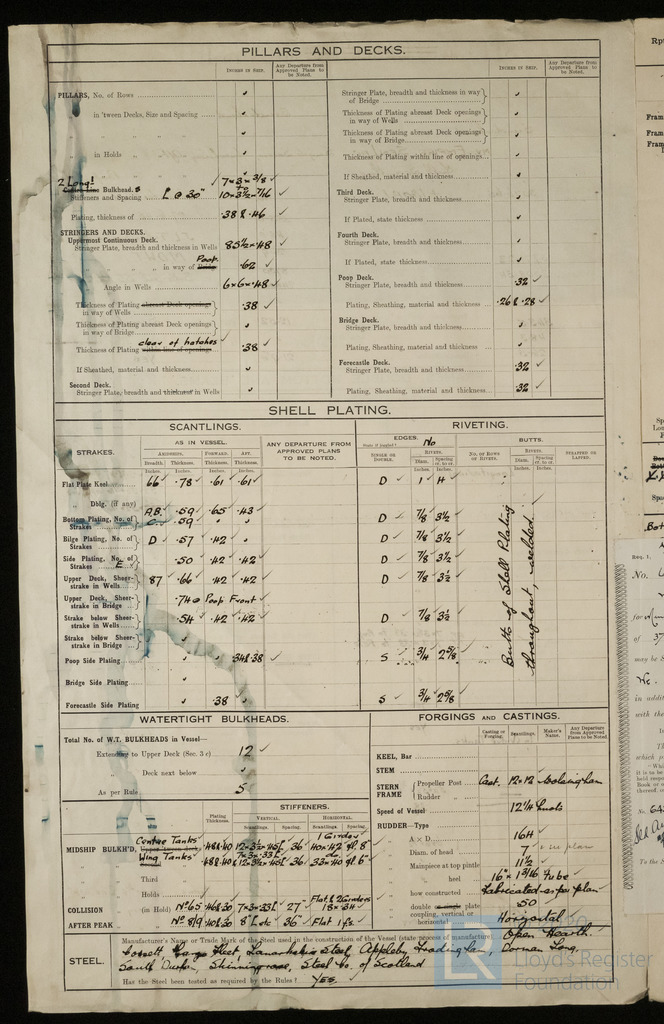 PILLARS AND DECKS.
INCHES IN SHIP.
Any Departure from Approved Plans to be Noted.
PILLARS, No. of Rows
in 'tween Decks, Size and Spacing
in Holds
2 Long!
Bulkhead.s
7 × 3 × 3/8
Stiffeners and Spacing L @ 30"
10 × 3½ × 7/16
Plating, thickness of .38 & .46
STRINGERS AND DECKS.
Uppermost Continuous Deck.
Stringer Plate, breadth and thickness in Wells
" " in way of Bridge Poop .62
Angle in Wells 6 × 6 × .48
Thickness of Plating abreast Deck openings in way of Wells .38
Thickness of Plating abreast Deck openings in way of Bridge
clear of hatches
Thickness of Plating within line of openings .38
If Sheathed, material and thickness
Second Deck.
Stringer Plate, breadth and thickness in Wells
INCHES IN SHIP.
Any Departure from Approved Plans to be Noted.
Stringer Plate, breadth and thickness in way of Bridge
Thickness of Plating abreast Deck openings in way of Wells
Thickness of Plating abreast Deck openings in way of Bridge
Thickness of Plating within line of openings
If Sheathed, material and thickness
Third Deck.
Stringer Plate, breadth and thickness
If Plated, state thickness
Fourth Deck.
Stringer Plate, breadth and thickness
If Plated, state thickness
Poop Deck.
Stringer Plate, breadth and thickness .32
Plating, Sheathing, material and thickness .26 & .28
Bridge Deck.
Stringer Plate, breadth and thickness
Plating, Sheathing, material and thickness
Forecastle Deck.
Stringer Plate, breadth and thickness .32
Plating, Sheathing, material and thickness .32
SHELL PLATING.
SCANTLINGS.
RIVETING.
STRAKES.
AS IN VESSEL.
AMIDSHIPS. FORWARD. AFT.
Breadth. Thickness. Thickness. Thickness.
Inches. Inches. Inches. Inches.
ANY DEPARTURE FROM APPROVED PLANS TO BE NOTED.
EDGES. No
State if joggled?
SINGLE OR DOUBLE.
RIVETS.
Diam. Spacing cr. to cr.
Inches. Inches.
BUTTS.
NO. OF ROWS OF RIVETS.
RIVETS.
Diam. Spacing cr. to cr.
Inches. Inches.
STRAPPED OR LAPPED.
Flat Plate Keel 66 .78 .61 .61 D 1 4
Dblg. (if any)
Bottom Plating, No. of Strakes A.B. .59 .65 .43 D 7/8 3½
C .59
Bilge Plating, No. of Strakes D .57 .42 D 7/8 3½
Side Plating, No. of Strakes E .50 .42 .42 D 7/8 3½
Upper Deck, Sheerstrake in Wells 87 .66 .42 .42 D 7/8 3½
Upper Deck, Sheerstrake in Bridge .74 @ Poop Front
Strake below Sheerstrake in Wells .54 .42 .42 D 7/8 3½
Strake below Sheerstrake in Bridge
Poop Side Plating .34 & .38 S 3/4 2 5/8
Bridge Side Plating
Forecastle Side Plating .38 S 3/4 2 5/8
Butts of Shell Plating
throughout, welded
WATERTIGHT BULKHEADS.
Total No. of W.T. BULKHEADS in Vessel—
Extending to Upper Deck (Sec. 3 c) 12
" Deck next below
As per Rule 5
STIFFENERS.
Plating Thickness.
VERTICAL.
HORIZONTAL.
Scantlings. Spacing. Scantlings. Spacing.
MIDSHIP BULKH'D, Centre Tanks
Wing Tanks
Third
Holds
COLLISION (in Hold) No 65
AFTER PEAK No 8/9
FORGINGS AND CASTINGS.
Casting or Forging.
Scantlings.
Maker's Name.
Any Departure from Approved Plans to be Noted.
KEEL, Bar
STEM
STERN FRAME Propeller Post Cast. 12 × 12 Wolsingham
Rudder
Speed of Vessel 12¼ knots
RUDDER—Type
A × D 164
Diam. of head 7
Mainpiece at top pintle 11½
" heel 16" × 13/16 Tube
how constructed Fabricated as per plan
double or single plate .50
coupling, vertical or horizontal Horizontal
STEEL.
Manufacturer's Name or Trade Mark of the Steel used in the construction of the Vessel (state process of manufacture). Open Hearth
Consett, Cargo Fleet, Lanarkshire Steel, Appleby Frodingham, Dorman Long,
South Durham, Skinningrove, Steel Co. of Scotland
Has the Steel been tested as required by the Rules? Yes.
Lloyd's Register
Foundation